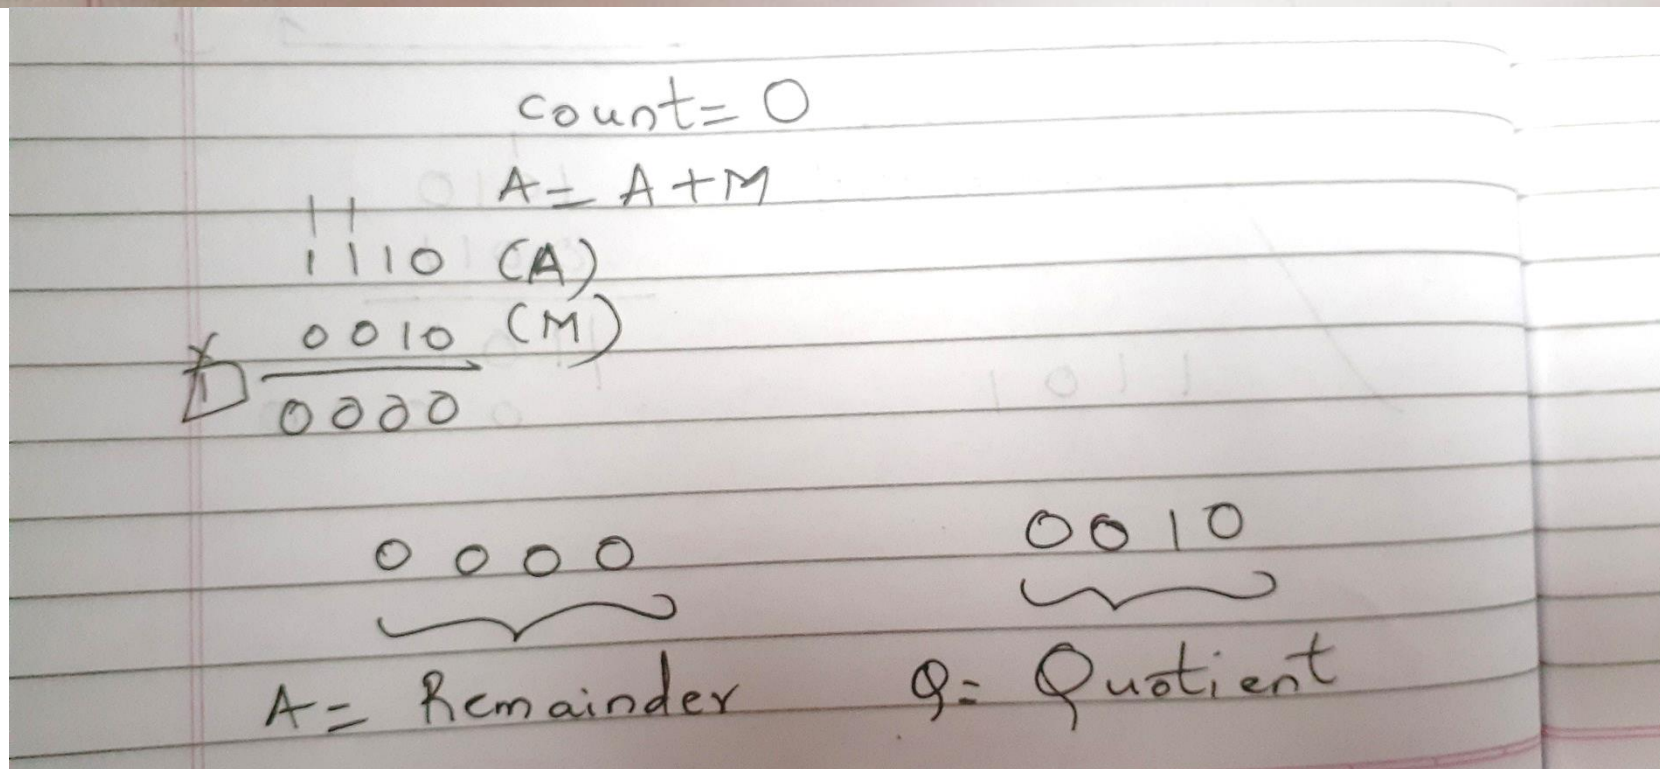 count= 0
A= A+M
11
1110 (A)
0010 (M)
1 0000
0000 0010
A= Remainder Q= Quotient